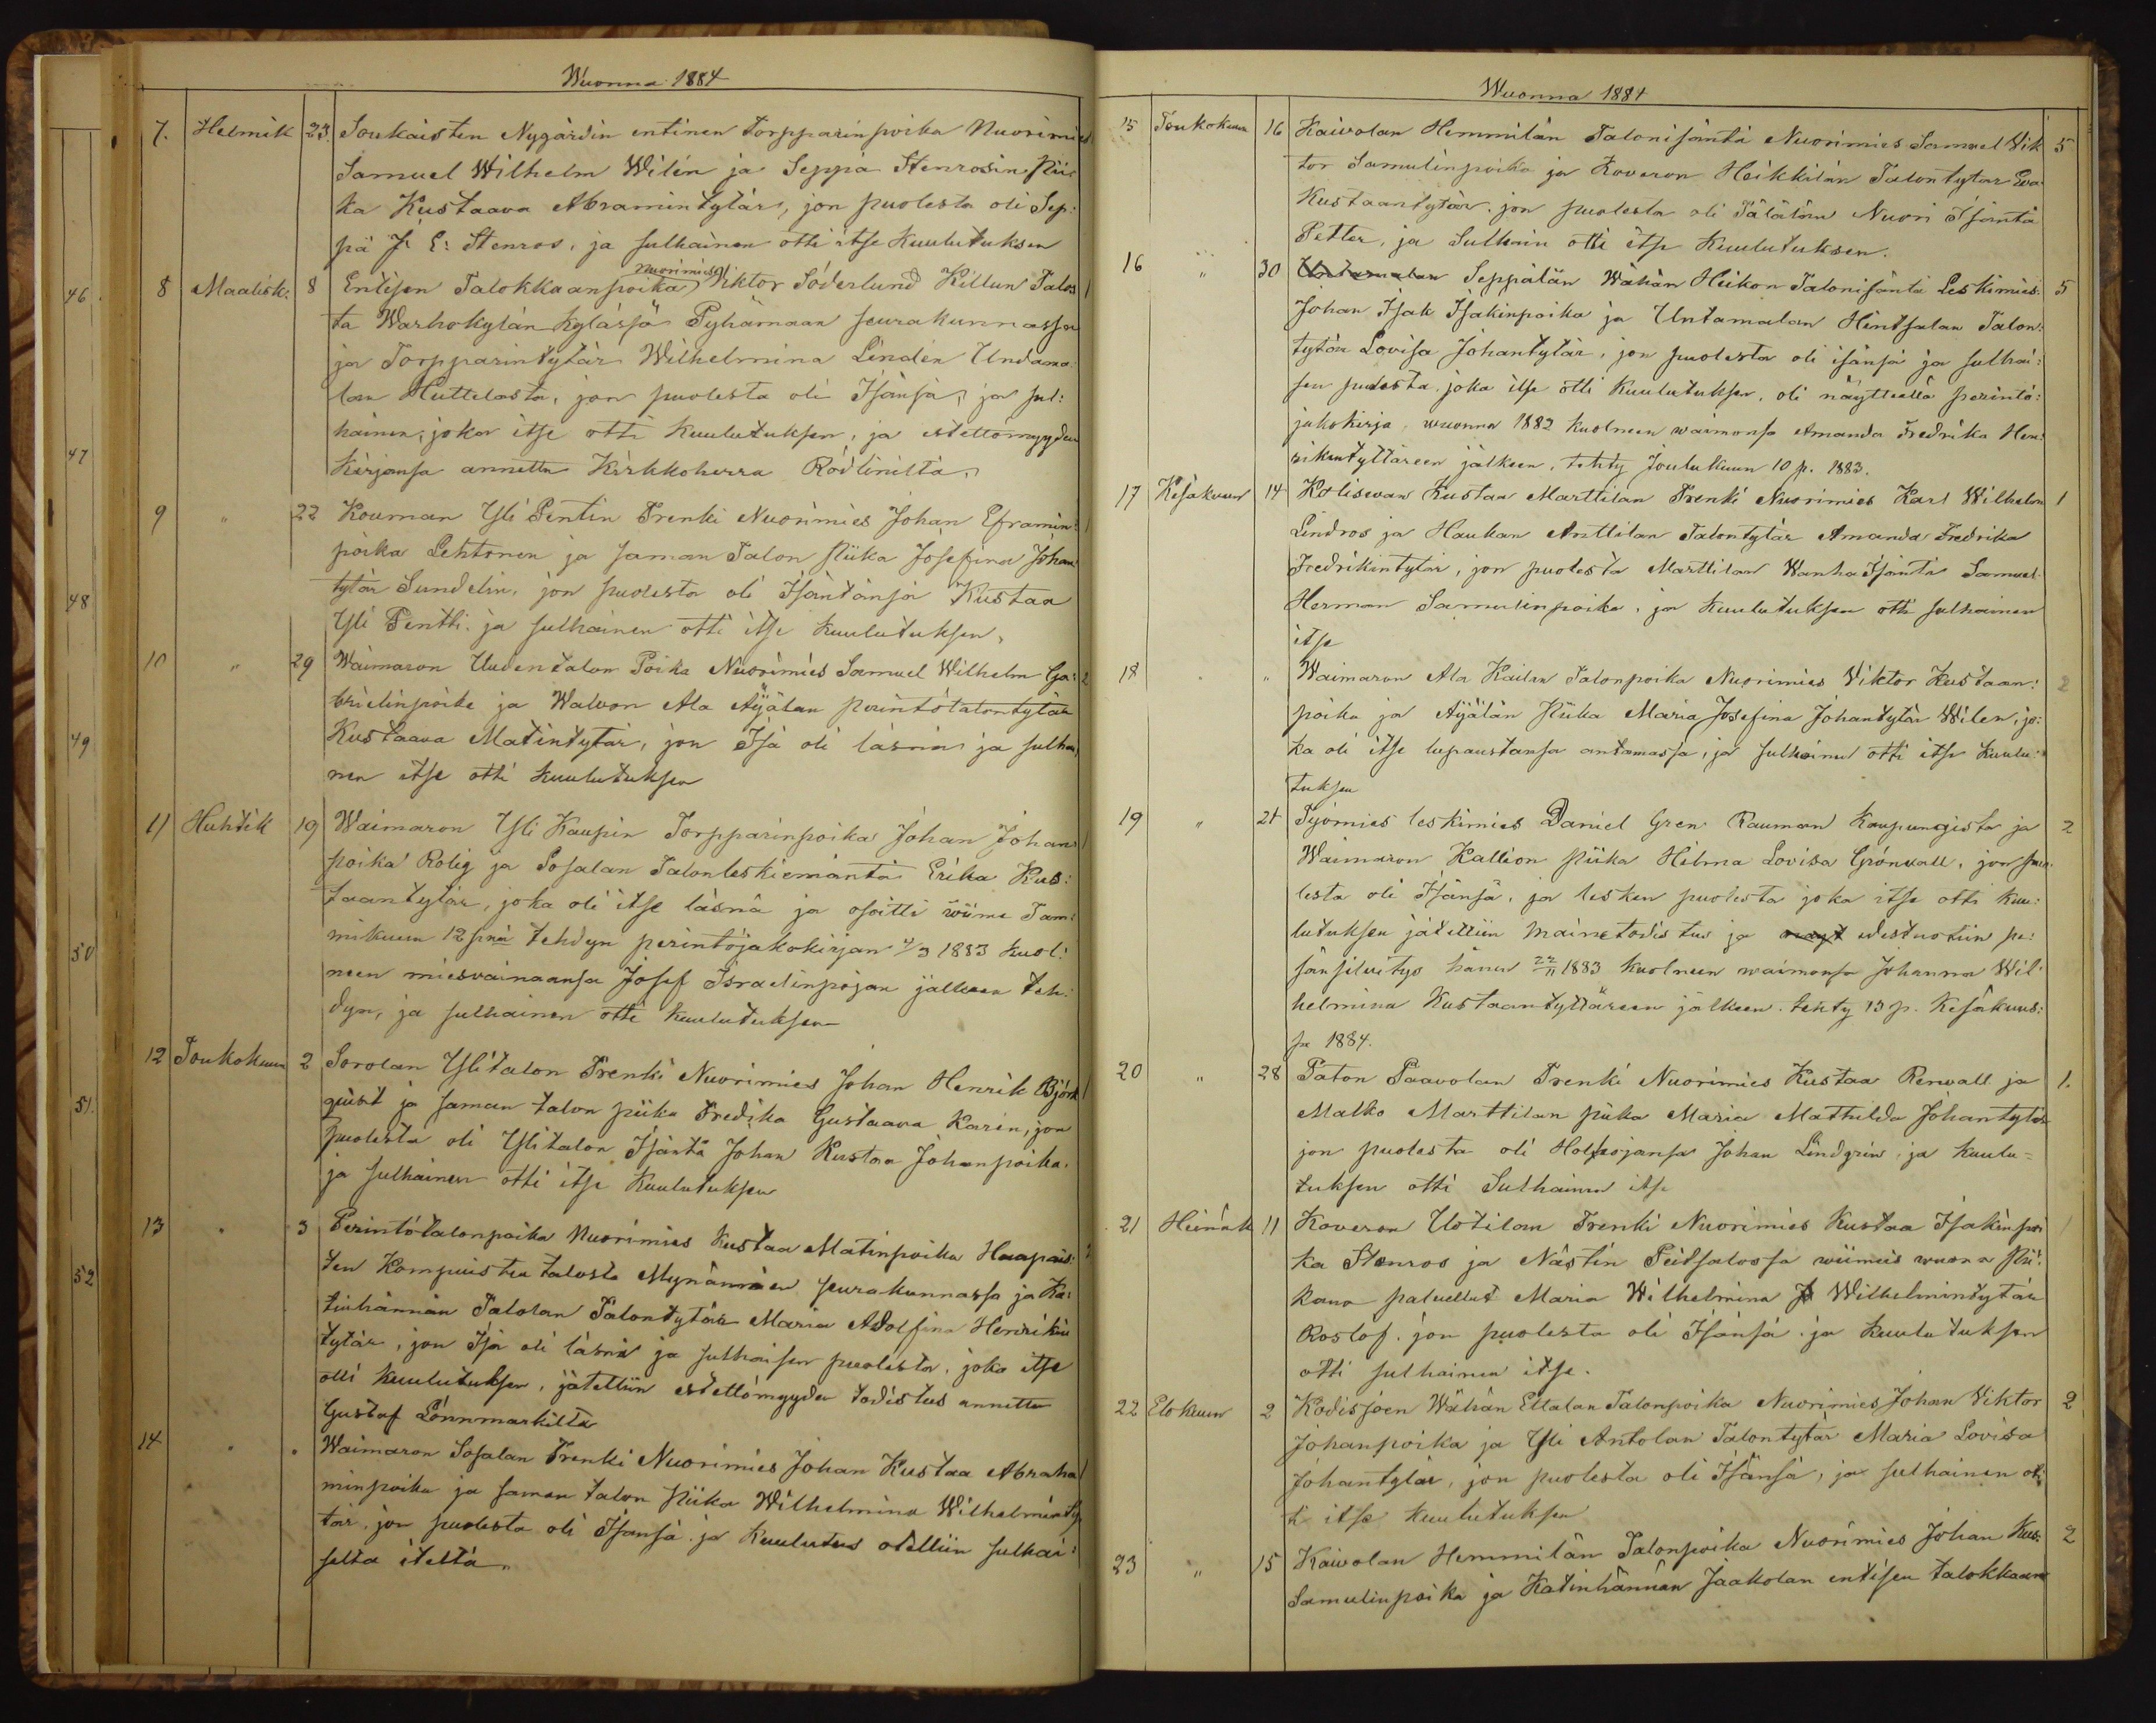 46
47
48
49
50
51.
52
Wuonna 1884
7. Helmik 23. Soukaisten Nygårdin entinen torpparinpoika Nuorimies
Samuel Wilhelm Wilén ja Seppä Stenrosin Pii:
ka Kustaava Abramintytär, jon puolesta oli Sep:
pä J: E: Stenros, ja sulhainen otti itse Kuulutuksen
8 Maalisk: 8 Entisen Talokkaanpoika Nuorimies Viktor Söderlund Killun Talos 1
ta Warhokylän kylässä Pyhämaan seurakunnassa
ja Torpparintytär Wilhelmina Lindén Undama:
lan Huttilasta, jon puolesta oli Isänsä, ja sul:
hainen, joka itse otti kuulutuksen, ja estettömyyden
kirjansa annettu Kirkkoherra Rödliniltä
9 " 22 Kouman Yli Pentin Trenki Nuorimies Johan Eframin: 1
poika Lehtonen ja saman Talon Piika Josefina Johan
tytär Sundelin, jon puolesta oli Isäntänsä Kustaa
Yli Pentti. ja sulhainen otti itse kuulutuksen,
10 " 29 Waimaron Uudentalon Poika Nuorimies Samuel Wilhelm Ga: 2
brielinpoika ja Walvon Ala Äijälän perintötalontytär
Kustaava Matintytär, jon Isä oli läsnä ja sulhai
nen itse otti kuulutuksen
11 Huhtik 19 Waimaron Yli Kaupin Torpparinpoika Johan Johan 1
poika Rolig ja Sosalan Talonleskiemäntä Erika Kus:
taantytär, joka oli itse läsnä ja osoitti wiime Tam:
mikuun 12 pnä tehdyn perintöjakokirjan 4/3 1883 kuol:
neen miesvainaansa Josef Israelinpojan jälkeen teh:
dyn, ja sulhainen otti kuulutuksen
12 Toukokuun 2 Sorolan Ylitalon Trenki Nuorimies Johan Henrik Björk 1
qvist ja saman talon piika Fredika Gustaava Karin, jon
puolesta oli Ylitalon Isäntä Johan Kustaa Johanpoika,
ja sulhainen otti itse Kuulutuksen
13 " 3 Perintötalonpoika Nuorimies Kustaa Matinpoika Haapais:
ten Kompuistu talosta Mynämäen seurakunnassa ja Ka:
tinhännän Talolan Talontytär Maria Adolfina Henrikin
tytär, jon Isä oli läsnä ja sulhaisen puolesta, joka itse
otti kuulutuksen, jätettiin estettömyyden todistus annettu
Gustaf Lönnmarkilta
14 " " Waimaron Sosalan Trenki Nuorimies Johan Kustaa Abraha 1
minpoika ja saman talon piika Wilhelmina Wilhelminty
tär, jon puolesta oli Isänsä ja kuulutus otettiin sulhai:
selta itseltä.
Wuonna 1884
15 Toukokuun 16 Kaivolan Hemmilän Talonisäntä Nuorimies Samuel Vik 5
tor Samulinpoika ja Koveron Heikkilän Talontytär Eva
Kustaantytär, jon puolesta oli Tälälän Nuori Isäntä
Petter, ja Sulhain otti itse Kuulutuksen.
16 " 30 Untamalan Seppälän Wähän Heikon Talonisäntä Leskimies 5
Johan Isak Isakinpoika ja Untamalan Hintsalan Talon:
tytär Lovisa Johantytär, jon puolesta oli isänsä ja sulhai:
sen puolesta, joka itse otti kuulutuksen, oli näytteellä perintö:
jakokirja, wuonna 1882 kuolneen waimonsa Amanda Fredrika Hen:
rikintyttäreen jälkeen, tehty Joulukuun 10 p. 1883.
17 Kesäkuun 14 Kodiswan Kustaa Marttilan Trenki Nuorimies Karl Wilhelm 1
Lindros ja Haukan Anttilan Talontytär Amanda Fredrika
Fredrikintytär, jon puolesta Marttilan Wanha Isäntä Samuel
Herman Samulinpoika, ja kuulutuksen otti sulhainen
itse
18 " " Waimaron Ala Kailan Talonpoika Nuorimies Viktor Kustaan: 2
poika ja Äijälän Piika Maria Josefina Johantytär Wilen, jo:
ka oli itse lupaustansa antamassa, ja sulhainen otti itse kuulu:
tuksen
19 " 21 Työmies leskimies Daniel Gren Rauman Kaupungista ja 2
Waimaron Kallion Piika Hilma Lovisa Grönvall, jon puo:
lesta oli Isänsä, ja lesken puolesta joka itse otti kuu:
lutuksen jätettiin mainetodistus ja näyt edestuotiin pe:
sänsilvitys hänen 22/11 1883 kuolneen waimonsa Johanna Wil:
helmina Kustaantyttäreen jälkeen. tehty 13 p. Kesäkuus:
sa 1884.
20 " 28 Taton Paavolan Trenki Nuorimies Kustaa Renvall ja 1.
Malko Marttilan piika Maria Mathilda Johantytär
jon puolesta oli Holhojansa Johan Lindgrén, ja kuulu=
tuksen otti Sulhainen itse
21 Heinäk 11 Koveron Uotilan Trenki Nuorimies Kustaa Isakinpoi
ka Stenros ja Nästin Peitsaloosa wiimeis wuona Pii:
kana palvellut Maria Wilhelmina Wilhelmintytär
Roslof. jon puolesta oli Isänsä. ja kuulutuksen
otti sulhainen itse.
22 Elokuun 2 Kodisjoen Wähän Ellalan Talonpoika Nuorimies Johan Viktor 2
Johanpoika ja Yli Antolan Talontytär Maria Lovisa
Johantytär, jon puolesta oli Isänsä, ja sulhainen ot:
ti itse kuulutuksen
23 " 15 Kaivolan Hemmilän Talonpoika Nuorimies Johan Kus: 2
Samulinpoika ja Katinhännän Jaakolan entisen talokkaan